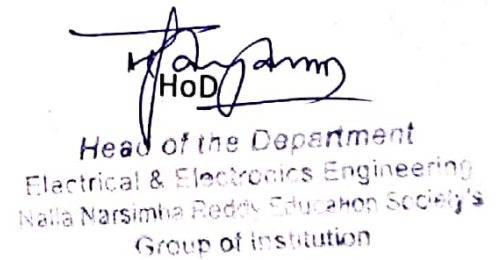 HoD
Head of the Department
Electrical & Electronics Engineering
Nalla Narsimha Reddy Education Society's
Group of Institution